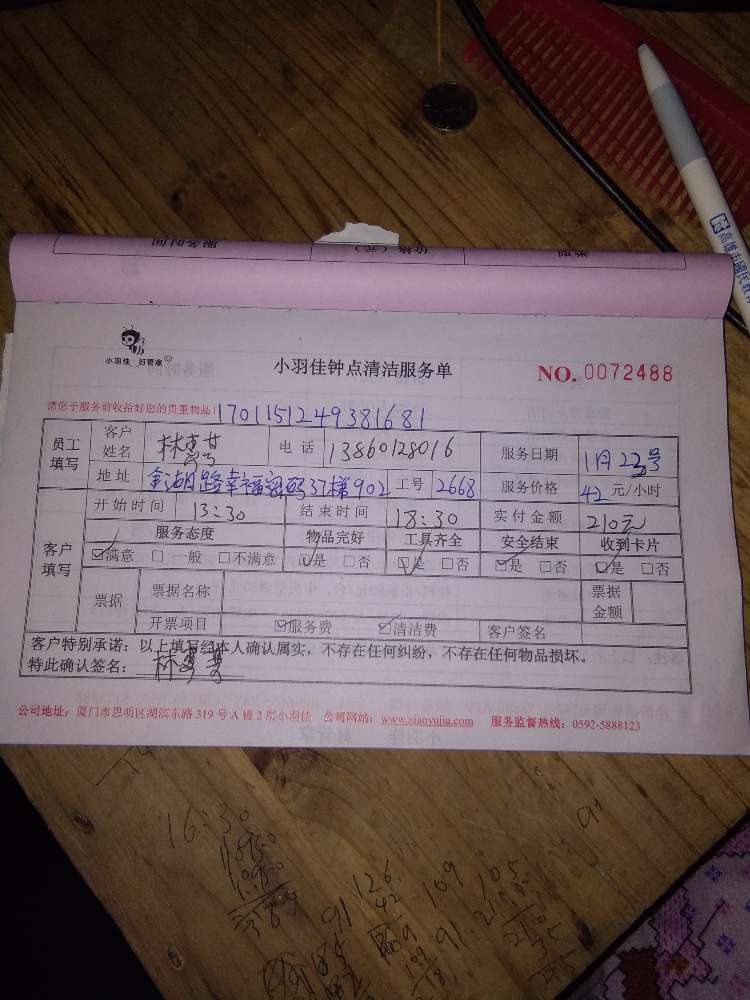 服务时间
价格（元）
类别
高雄市國民
小羽佳 好管家
小羽佳钟点清洁服务单
NO. 0072488
请您于服务前收拾好您的贵重物品！
1701151249381681
员工填写
客户姓名
电 话 13860128016
服务日期 1月23号
地 址 金湖路幸福密码37梯902
工号 2668
服务价格 42 元/小时
客户填写
开始时间 13:30
结束时间 18:30
实付金额 210元
服务态度 物品完好 工具齐全 安全结束 收到卡片
☑满意 □一般 □不满意 ☑是 □否 ☑是 □否 ☑是 □否 ☑是 □否
票据
票据名称
票据金额
开票项目 ☑服务费 ☑清洁费 客户签名
客户特别承诺：以上填写经本人确认属实，不存在任何纠纷，不存在任何物品损坏。
特此确认签名：
公司地址：厦门市思明区湖滨东路 319 号 A 幢 2 层小羽佳 公司网站：www.xiaoyujia.com 服务监督热线：0592-5888123
16:30
126
109
105
42
91